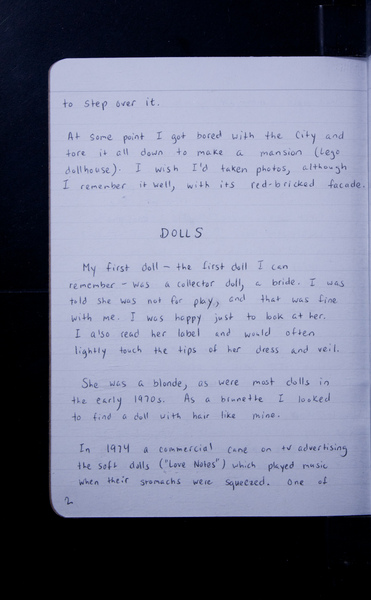 to step over it.
At some point I got bored with the City and
tore it all down to make a mansion (Lego
dollhouse). I wish I'd taken photos, although
I remember it well, with its red-bricked facade.
DOLLS
My first doll – the first doll I can
remember – was a collector doll, a bride. I was
told she was not for play, and that was fine
with me. I was happy just to look at her.
I also read her label and would often
lightly touch the tips of her dress and veil.
She was a blonde, as were most dolls in
the early 1970s. As a brunette I looked
to find a doll with hair like mine.
In 1974 a commercial came on tv advertising
the soft dolls ("Love Notes") which played music
when their stomachs were squeezed. One of
2